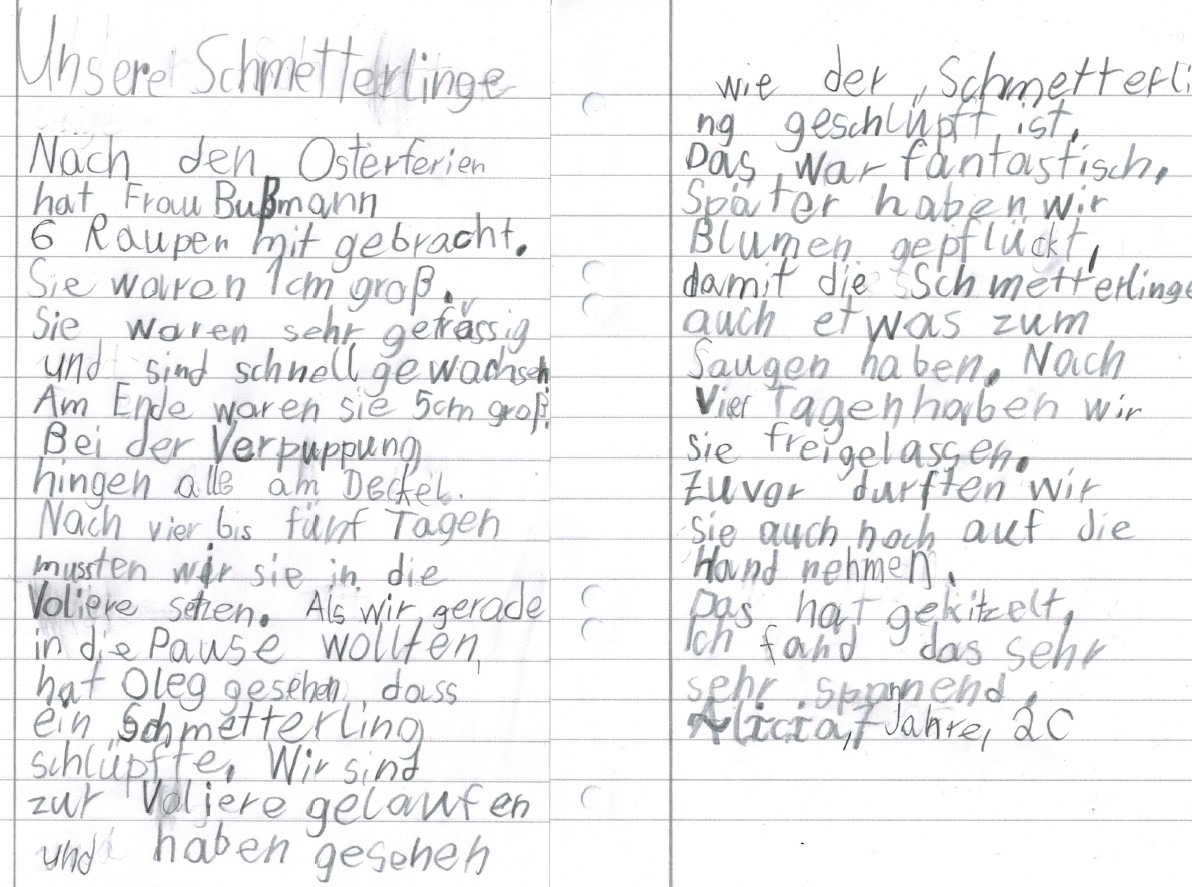 Unsere Schmetterlinge
Nach den Osterferien
hat Frau Bußmann
6 Raupen mit gebracht.
Sie waren 1cm groß.
Sie waren sehr gefrässig
und sind schnell gewachsen
Am Ende waren sie 5cm groß.
Bei der Verpuppung
hingen alle am Deckel.
Nach vier bis fünf Tagen
mussten wir sie in die
Voliere setzen. Als wir gerade
in die Pause wollten,
hat Oleg gesehen, dass
ein Schmetterling
schlüpfte. Wir sind
zur Voliere gelaufen
und haben gesehen
wie der Schmetterli
ng geschlüpft ist.
Das war fantastisch.
Später haben wir
Blumen gepflückt,
damit die Schmetterlinge
auch etwas zum
Saugen haben. Nach
Vier Tagen haben wir
sie freigelassen.
Zuvor durften wir
sie auch noch auf die
Hand nehmen.
Das hat gekitzelt.
Ich fand das sehr
sehr spannend.
Alicia, 7 Jahre, 2C